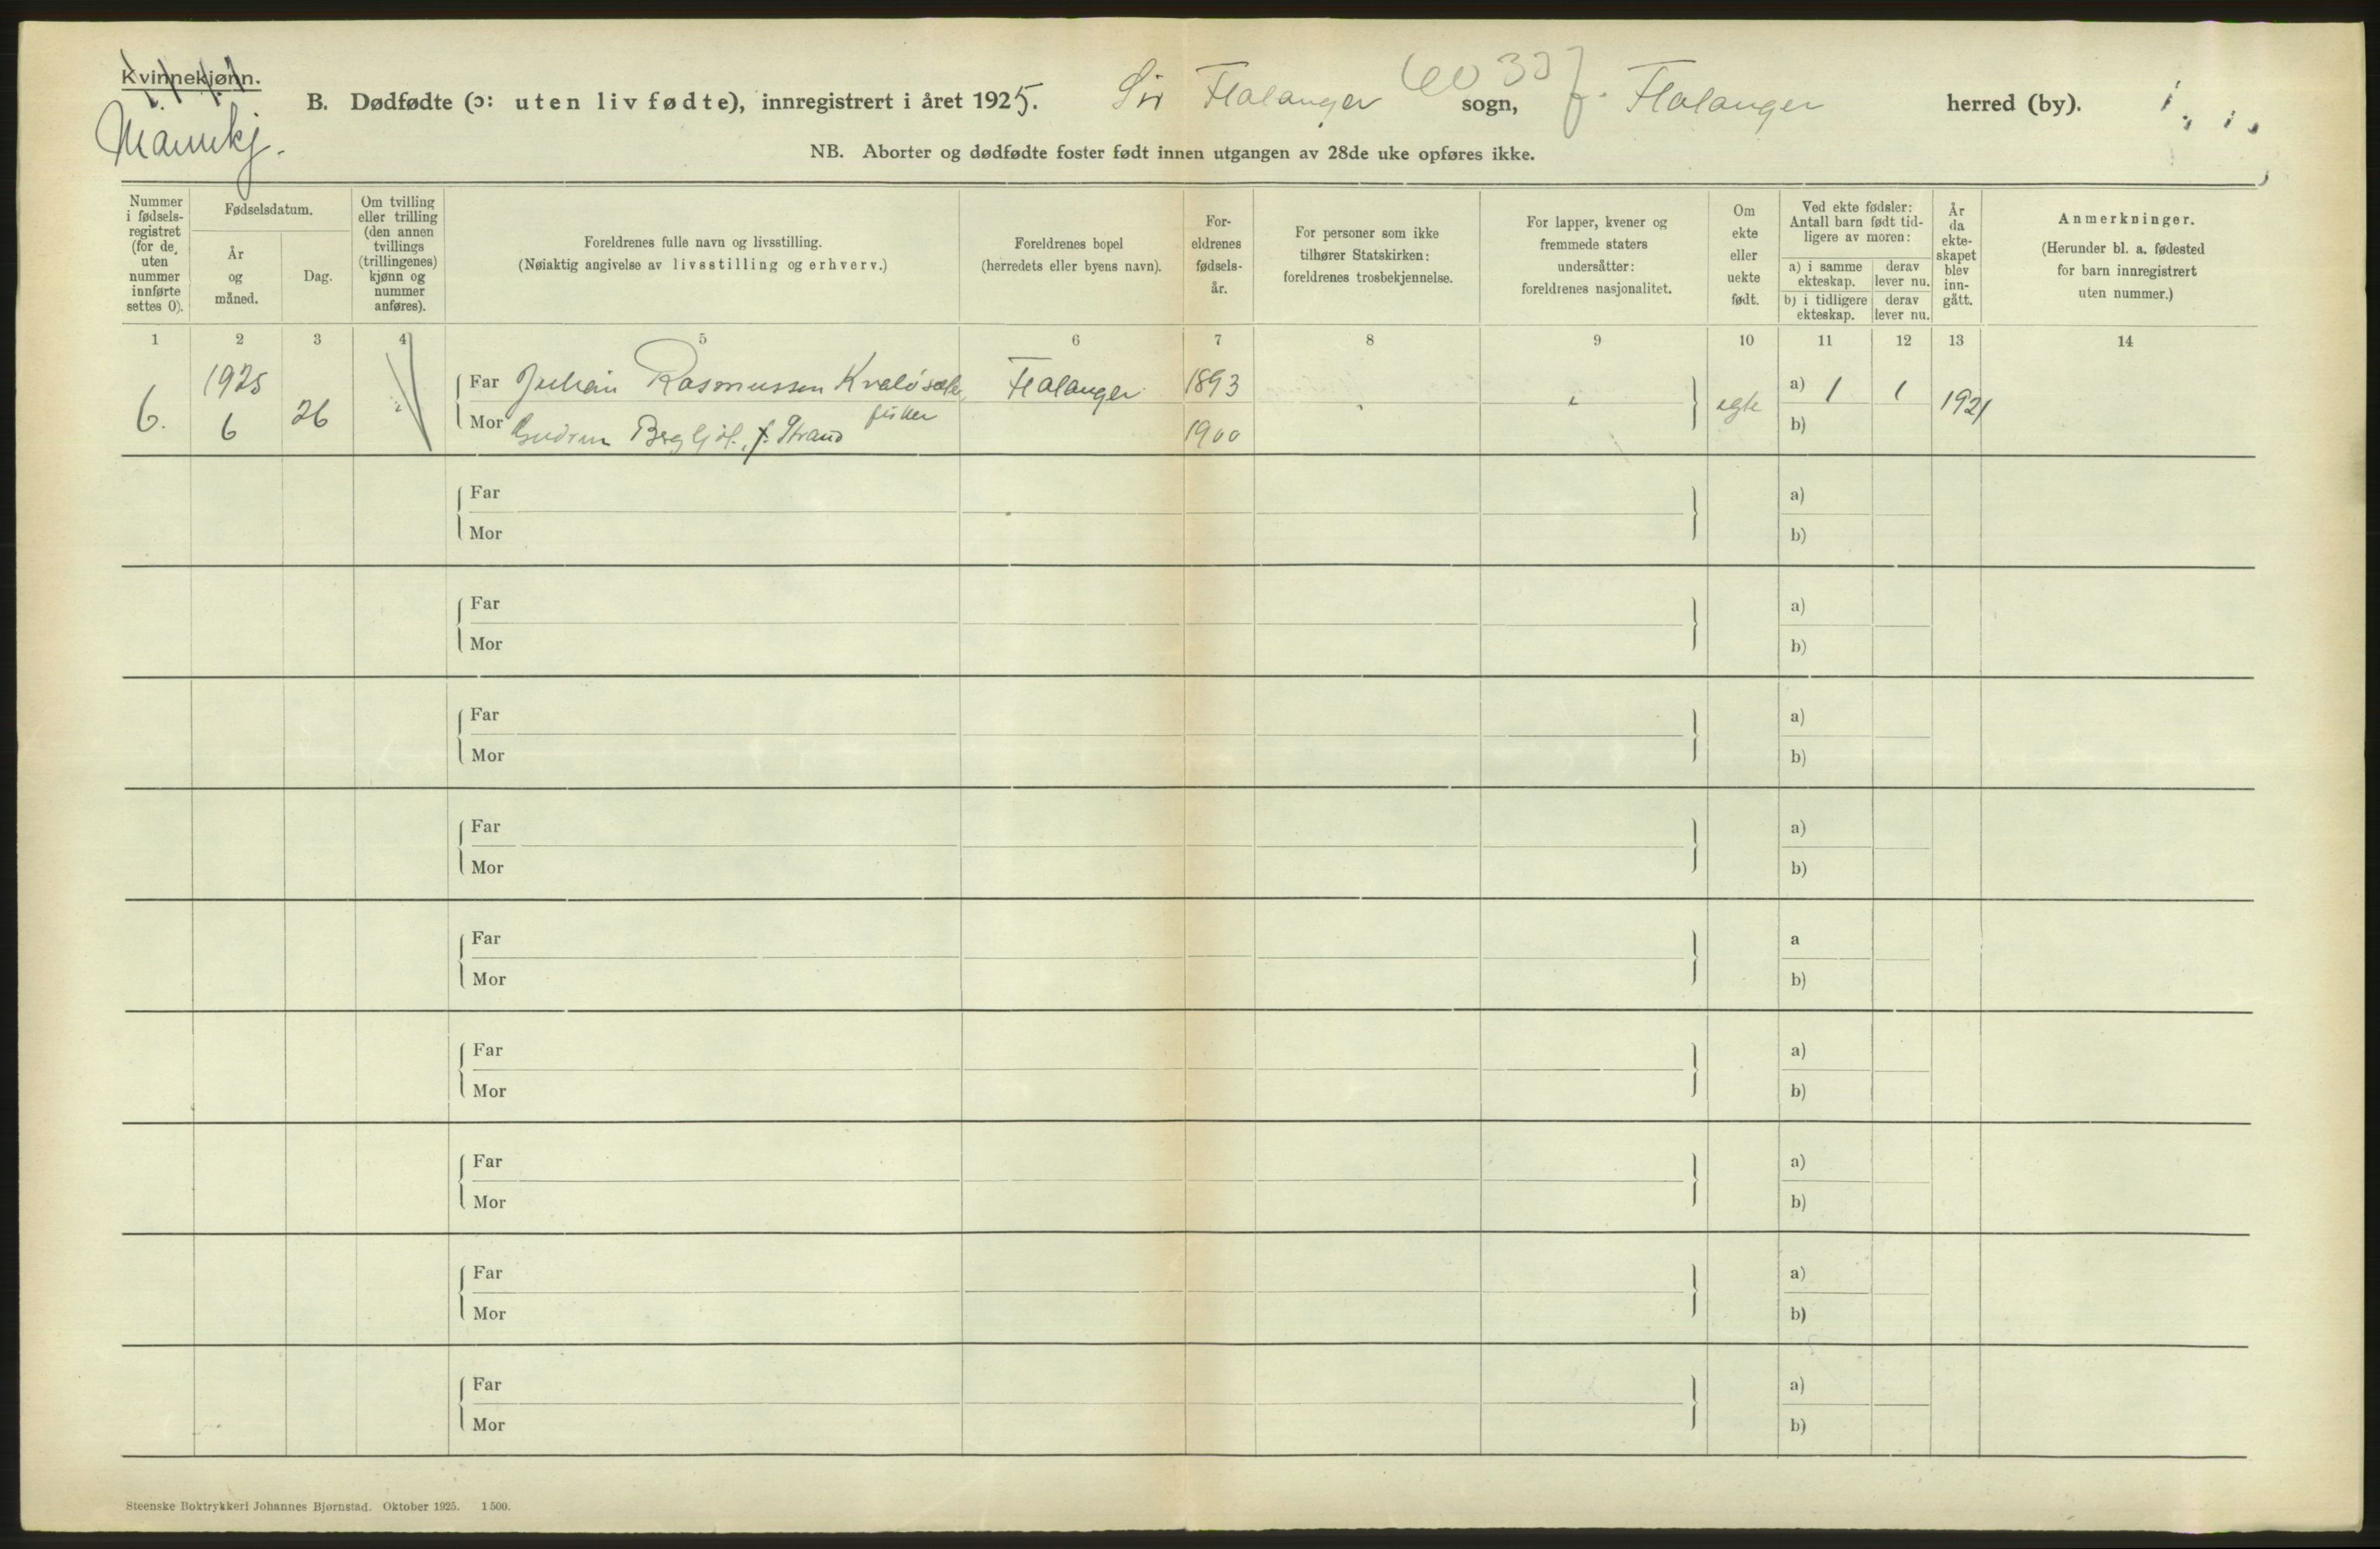 Kvinnekjønn.
Mannkj.
B. Dødfødte (ɔ: uten liv fødte), innregistrert i året 1925. Flatanger sogn, Flatanger herred (by).
NB. Aborter og dødfødte foster født innen utgangen av 28de uke opføres ikke.
Nummer
i fødsels-
registret
(for de
uten
nummer
innførte
settes 0).
Fødselsdatum.
År
og
måned.
Dag.
Om tvilling
eller trilling
(den annen
tvillings
(trillingenes)
kjønn og
nummer
anføres).
Foreldrenes fulle navn og livsstilling.
(Nøiaktig angivelse av livsstilling og erhverv.)
Foreldrenes bopel
(herredets eller byens navn).
For-
eldrenes
fødsels-
år.
For personer som ikke
tilhører Statskirken:
foreldrenes trosbekjennelse.
For lapper, kvener og
fremmede staters
undersåtter:
foreldrenes nasjonalitet.
Om
ekte
eller
uekte
født.
Ved ekte fødsler:
Antall barn født tid-
ligere av moren:
a) i samme
ekteskap.
derav
lever nu.
b) i tidligere
ekteskap.
derav
lever nu.
År
da
ekte-
skapet
blev
inn-
gått.
Anmerkninger.
(Herunder bl. a. fødested
for barn innregistrert
uten nummer.)
1 2 3 4 5 6 7 8 9 10 11 12 13 14
6. 1925 6 26
Far Julian Rasmussen Flatanger 1893 egte a) 1 1 1921
fisker
Mor Gudrun Bergljot f. Strand 1900 b)
Far a)
Mor b)
Far a)
Mor b)
Far a)
Mor b)
Far a)
Mor b)
Far a
Mor b)
Far a)
Mor b)
Far a)
Mor b)
Far a)
Mor b)
Far a)
Mor b)
Steenske Boktrykkeri Johannes Bjørnstad. Oktober 1925. 1500.